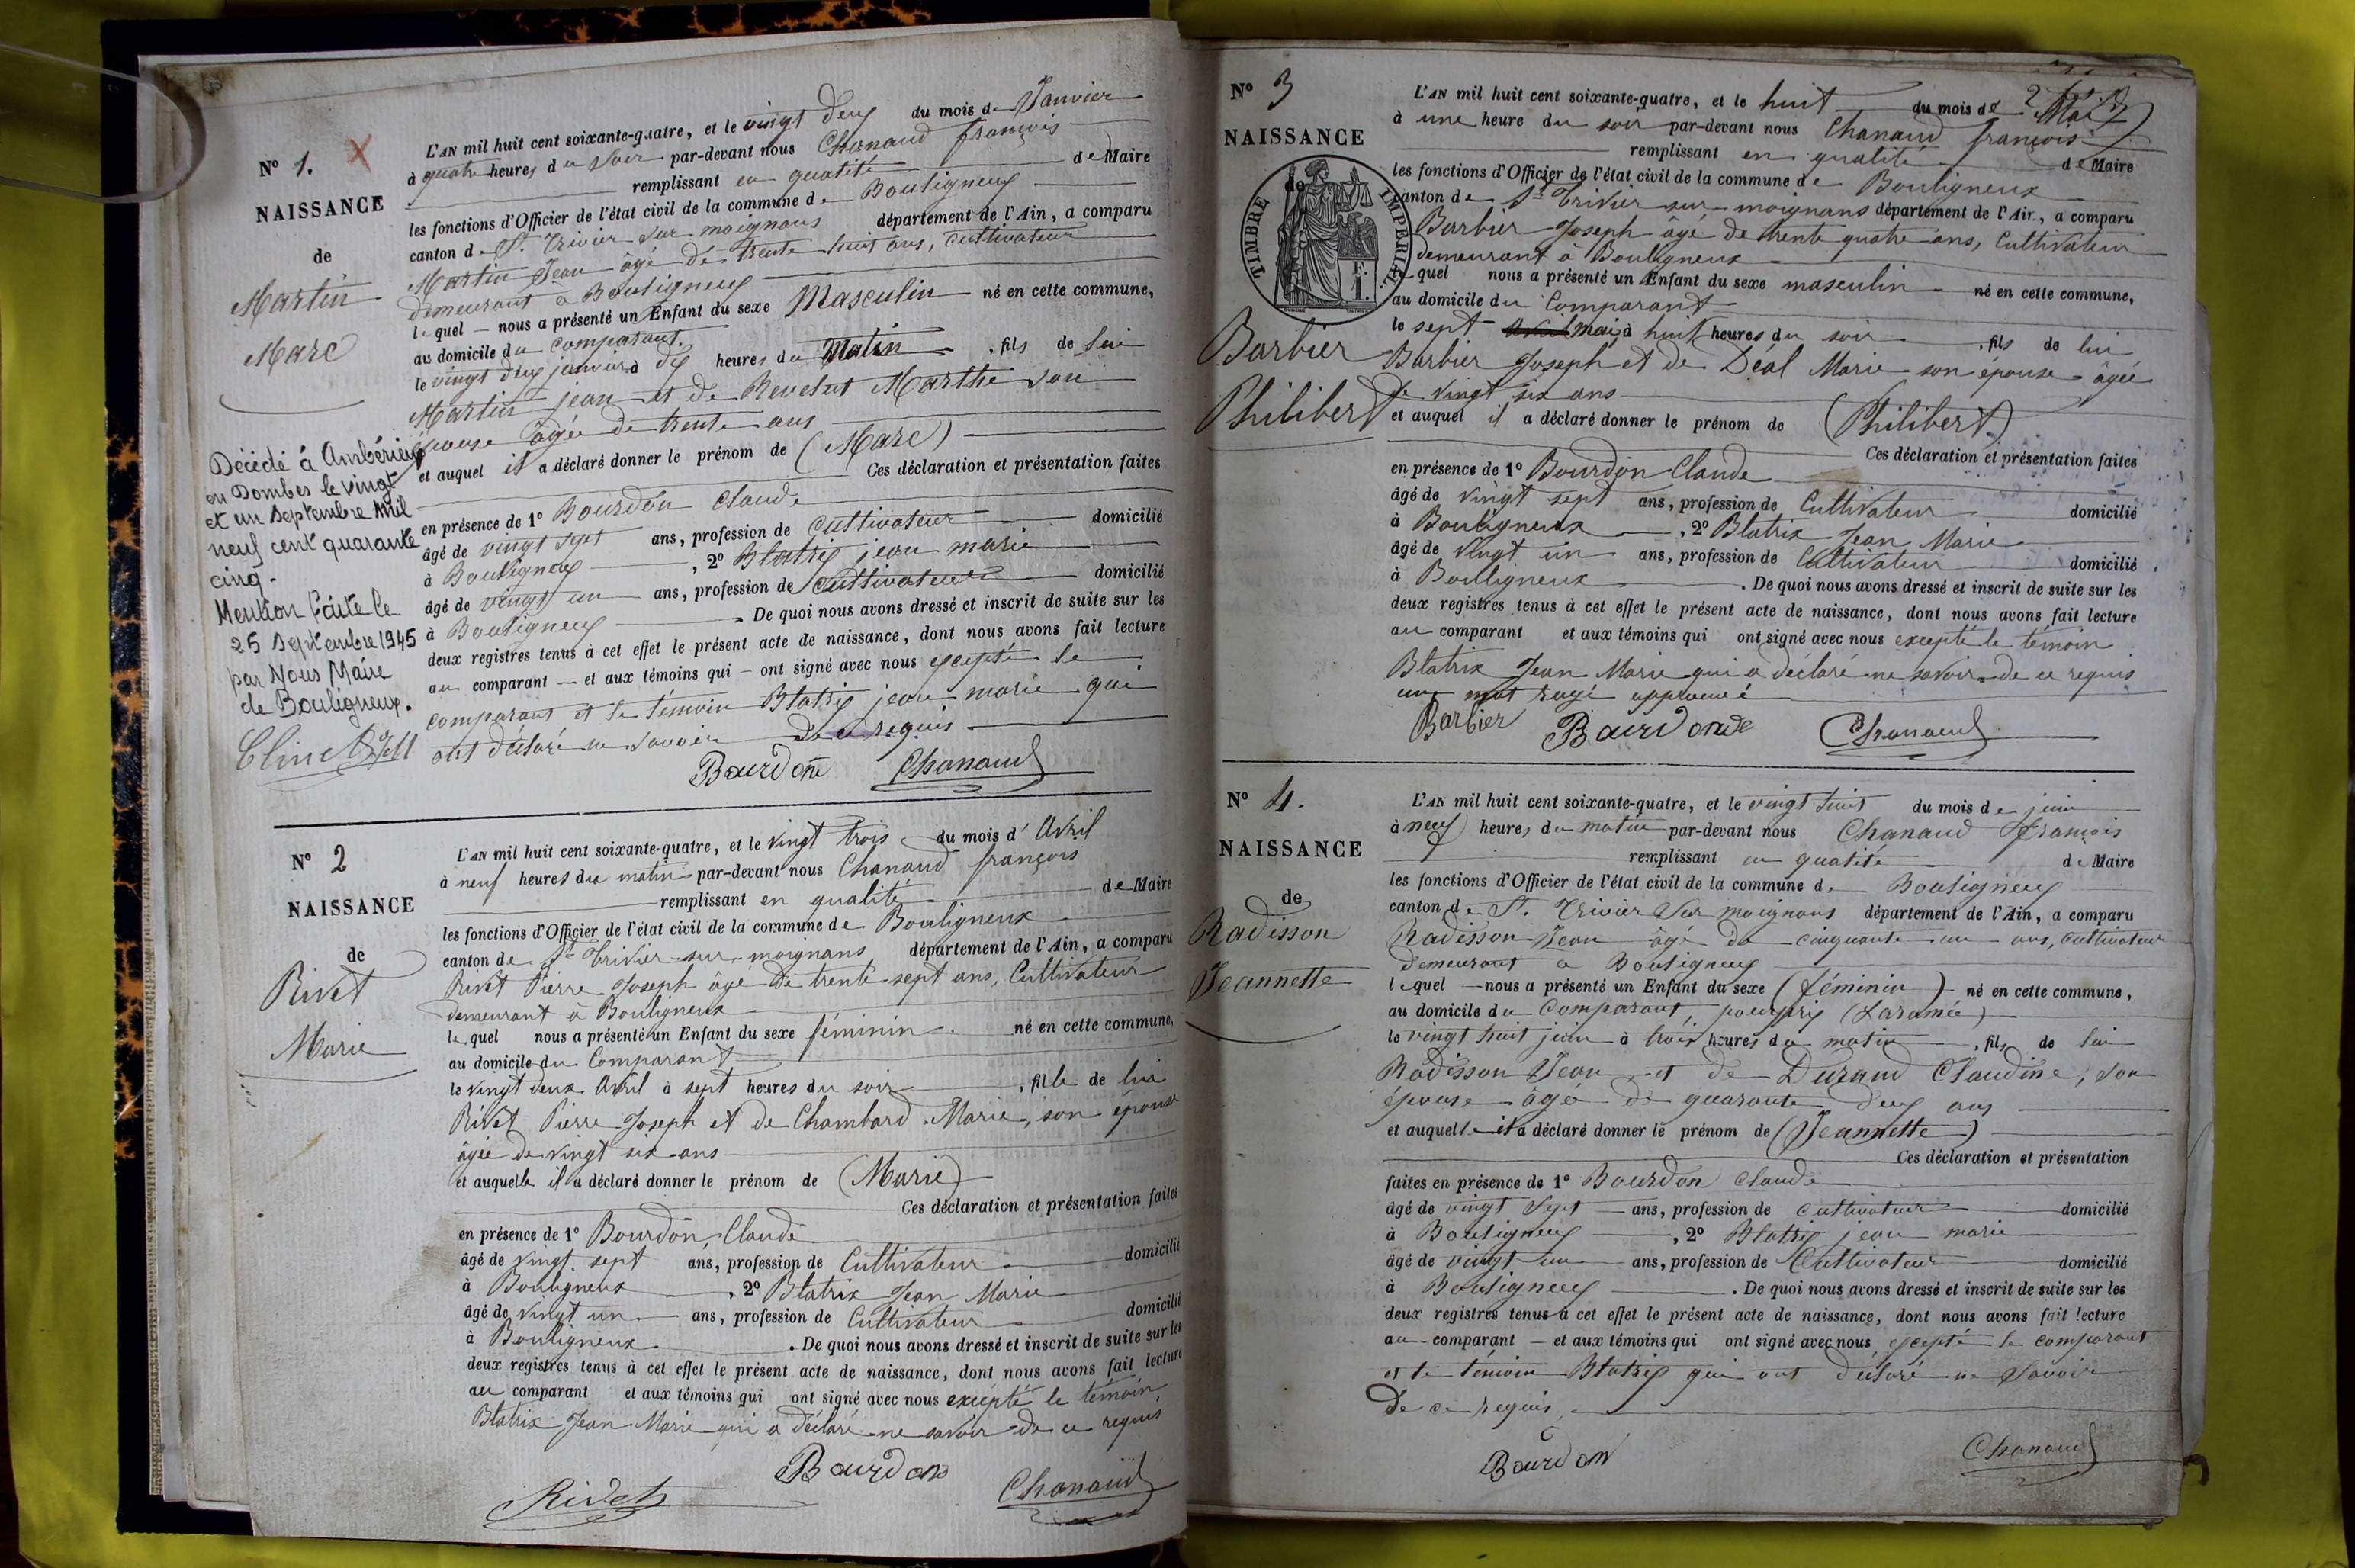 N° 1.
NAISSANCE
de
Martin
Marc
Décédé à Ambérieux
en Dombes le vingt
et un septembre mil
neuf cent quarante
cinq.
Mention faite le
25 septembre 1945
par Nous Maire
de Bouligneux.
L'AN mil huit cent soixante-quatre, et le vingt deux du mois de Janvier
à quatre heures du soir par-devant nous Chanaud françois
remplissant en qualité de Maire
les fonctions d'Officier de l'état civil de la commune de Bouligneux
canton de St. Trivier sur moignans département de l'Ain, a comparu
Martin Jean âgé de trente huit ans, cultivateur
demeurant à Bouligneux
lequel nous a présenté un Enfant du sexe Masculin né en cette commune,
au domicile du comparant.
le vingt deux janvier à dix heures du Matin, fils de lui
Martin jean et de Revelut Marthe son
épouse âgée de trente ans
et auquel il a déclaré donner le prénom de (Marc)
Ces déclaration et présentation faites
en présence de 1° Bourdon Claude
âgé de vingt sept ans, profession de cultivateur domicilié
à Bouligneux, 2° Blatrix jean marie
âgé de vingt un ans, profession de cultivateur domicilié
à Bouligneux. De quoi nous avons dressé et inscrit de suite sur les
deux registres tenus à cet effet le présent acte de naissance, dont nous avons fait lecture
au comparant et aux témoins qui ont signé avec nous excepté le
comparant et le témoin Blatrix jean marie qui
ont déclaré ne savoir de ce requis
Bourdon Chanaud
N° 2
NAISSANCE
de
Rivet
Marie
L'AN mil huit cent soixante-quatre, et le vingt trois du mois d'Avril
à neuf heures du matin par-devant nous Chanaud françois
remplissant en qualité de Maire
les fonctions d'Officier de l'état civil de la commune de Bouligneux
canton de St Trivier-sur-moignans département de l'Ain, a comparu
Rivet Pierre Joseph âgé de trente-sept ans, Cultivateur
demeurant à Bouligneux
lequel nous a présenté un Enfant du sexe féminin né en cette commune,
au domicile du Comparant
le vingt deux Avril à sept heures du soir, fille de lui
Rivet Pierre Joseph et de Chambard Marie, son épouse
âgée de vingt six ans
et auquelle il a déclaré donner le prénom de (Marie)
Ces déclaration et présentation faites
en présence de 1° Bourdon, Claude
âgé de vingt sept ans, profession de Cultivateur domicilié
à Bouligneux, 2° Blatrix Jean Marie
âgé de vingt un ans, profession de Cultivateur domicilié
à Bouligneux. De quoi nous avons dressé et inscrit de suite sur les
deux registres tenus à cet effet le présent acte de naissance, dont nous avons fait lecture
au comparant et aux témoins qui ont signé avec nous excepté le témoin,
Blatrix Jean Marie qui a déclaré ne savoir de ce requis
Rivet Bourdon Chanaud
N° 3
NAISSANCE
de
TIMBRE IMPÉRIAL
F.
1.
Barbier
Philibert
L'AN mil huit cent soixante-quatre, et le huit du mois de Mai
à une heure du soir par-devant nous Chanaud françois
remplissant en qualité de Maire
les fonctions d'Officier de l'état civil de la commune de Bouligneux
canton de St Trivier-sur-moignans département de l'Ain, a comparu
Barbier Joseph âgé de trente quatre ans, Cultivateur
demeurant à Bouligneux
lequel nous a présenté un Enfant du sexe masculin né en cette commune,
au domicile du Comparant
le sept mai à huit heures du soir, fils de lui
Barbier Joseph et de Déal Marie son épouse âgée
de vingt six ans
et auquel il a déclaré donner le prénom de (Philibert)
Ces déclaration et présentation faites
en présence de 1° Bourdon Claude
âgé de vingt sept ans, profession de Cultivateur domicilié
à Bouligneux, 2° Blatrix Jean Marie
âgé de vingt un ans, profession de Cultivateur domicilié
à Bouligneux. De quoi nous avons dressé et inscrit de suite sur les
deux registres tenus à cet effet le présent acte de naissance, dont nous avons fait lecture
au comparant et aux témoins qui ont signé avec nous excepté le témoin
Blatrix Jean Marie qui a déclaré ne savoir de ce requis
un mot rayé approuvé
Barbier Bourdon Chanaud
N° 4.
NAISSANCE
de
Radisson
Jeannette
L'AN mil huit cent soixante-quatre, et le vingt huit du mois de juin
à neuf heures du matin par-devant nous Chanaud françois
remplissant en qualité de Maire
les fonctions d'Officier de l'état civil de la commune de Bouligneux
canton de St. Trivier sur moignans département de l'Ain, a comparu
Radisson Jean âgé de cinquante un ans, cultivateur
demeurant à Bouligneux
lequel nous a présenté un Enfant du sexe (féminin) né en cette commune,
au domicile du Comparant, pourpris (Laramée)
le vingt huit juin à trois heures du matin, fils de lui
Radisson Jean et de Durand Claudine, son
épouse âgé de quarante deux ans
et auquelle il a déclaré donner le prénom de (Jeannette)
Ces déclaration et présentation
faites en présence de 1° Bourdon Claude
âgé de vingt sept ans, profession de cultivateur domicilié
à Bouligneux, 2° Blatrix jean marie
âgé de vingt un ans, profession de Cultivateur domicilié
à Bouligneux. De quoi nous avons dressé et inscrit de suite sur les
deux registres tenus à cet effet le présent acte de naissance, dont nous avons fait lecture
au comparant et aux témoins qui ont signé avec nous excepté le comparant
et le témoin Blatrix qui ont déclaré ne savoir
de ce requis
Bourdon Chanaud